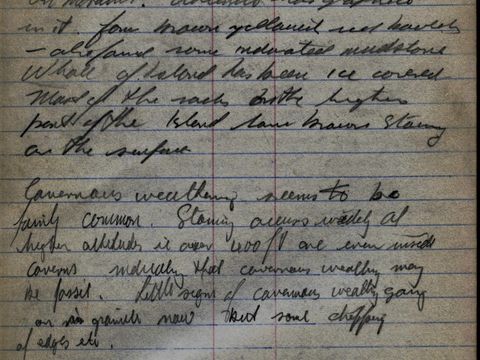 in it. four brown yellowish red
- also found some indurated mudstone
Whole of Island has been ice covered
Most of the rocks on the higher
part of the Island have brown staining
on the surface
Cavernous weathering seems to be
fairly common. Staining occurs widely at
higher altitudes ie over 400 ft are even inside
caverns indicating that cavernous weathering may
be fossil. Little signs of cavernous weathering going
on in granites now but some chipping
of edges etc.